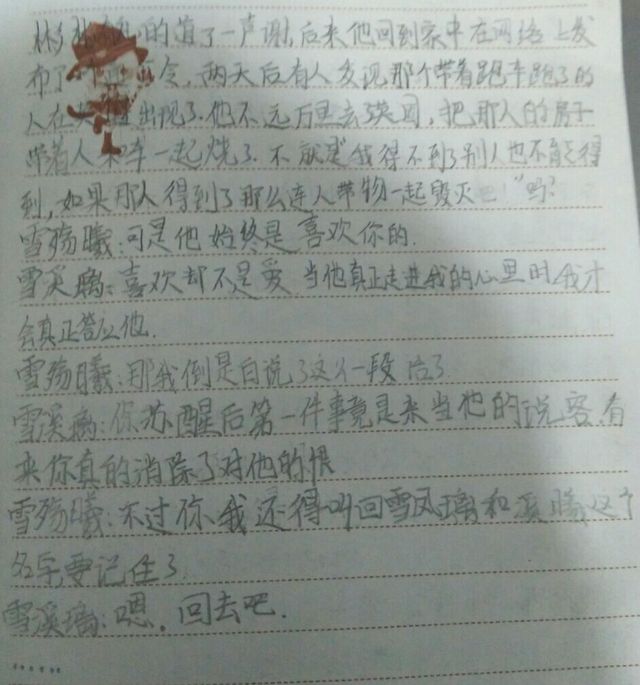 的道了一声谢,后来他回到家中在网络上发
布了 令,两天后有人发现那个带着跑车跑了的
人在 出现了.他不远万里去 国,把那人的房子
带着人 车一起烧了.不就是"我得不到了别人也不能得
到,如果那人得到了那么连人带物一起毁灭吧!"吗?
雪殇曦:可是他始终是喜欢你的.
雪溪璃:喜欢却不是爱.当他真正走进我的心里时我才
会真正答应他.
雪殇曦:那我倒是白说了这么一段话了.
雪溪璃:你苏醒后第一件事竟是来当他的说客.看
来你真的消除了对他的恨
雪殇曦:不过你我还得叫回雪凤璃和 这个
名字要记住了.
雪溪璃:嗯.回去吧.